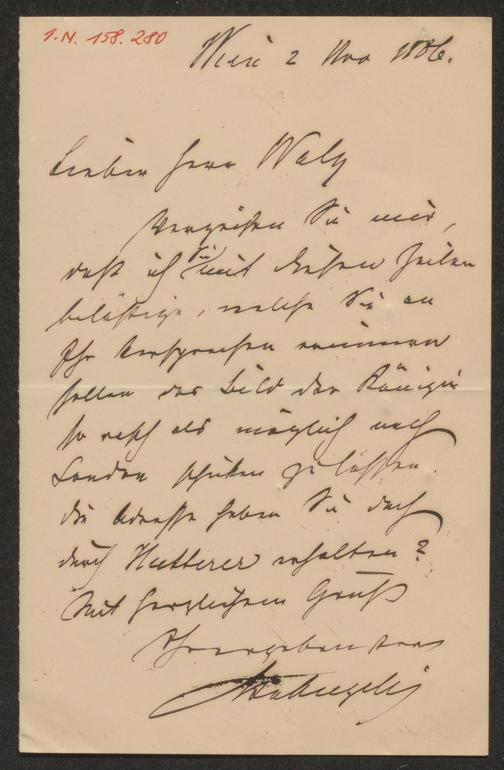 I.N. 158.280
Wien 2 Nov 1886.
Lieber Herr Walz
Verzeihen Sie mir,
daß ich Sie mit diesen Zeilen
belästige, welche Sie an
Ihr Versprechen erinnern
sollen das Bild der Königin
so rasch als möglich nach
London schicken zu lassen.
Die Adresse haben Sie doch
durch Hutterer erhalten?
Mit herzlichem Gruß
Ihr ergebenster
HvAngeli